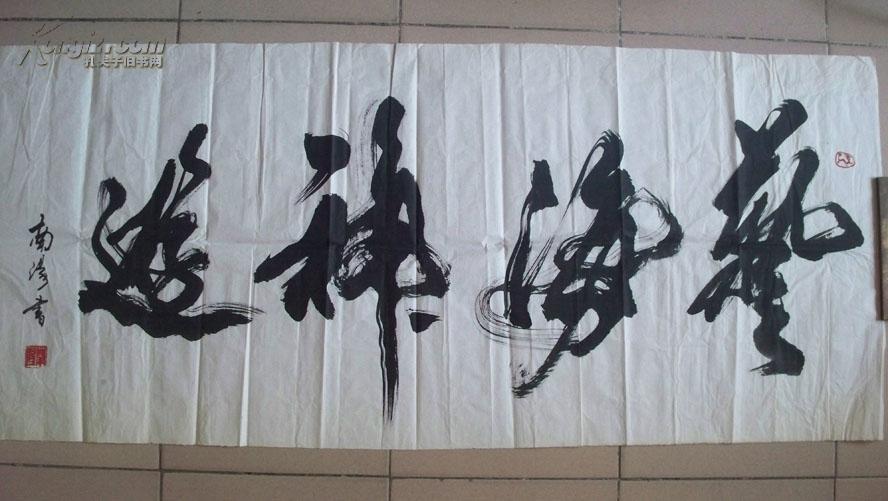 藝海神遊
南湾書
Kongfz.com
孔夫子旧书网